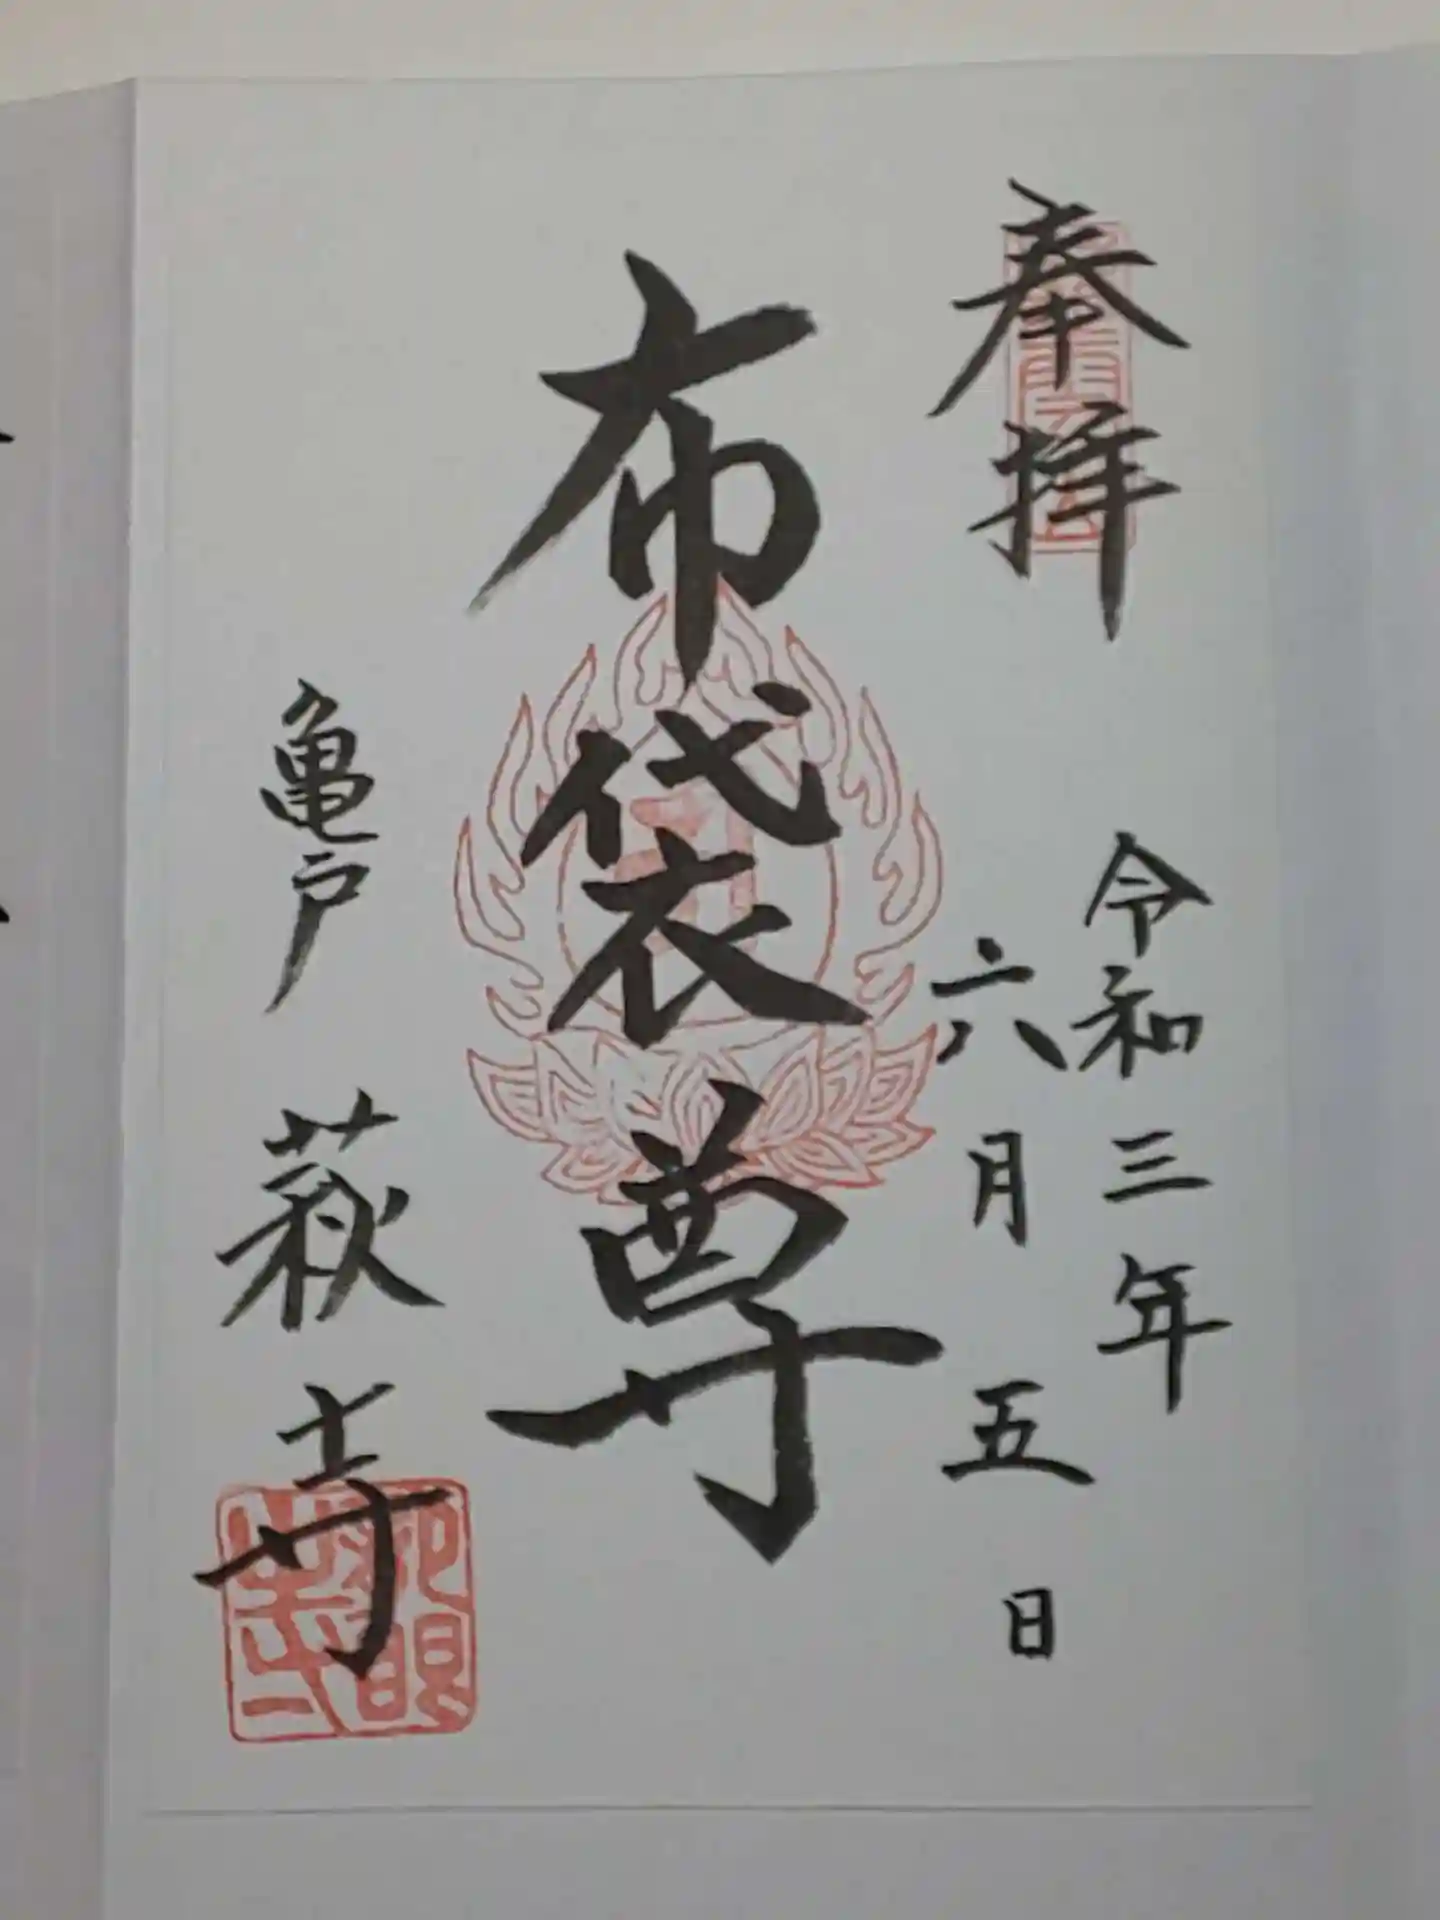 奉拝
令和三年
六月五日
布袋尊
亀戸 萩寺